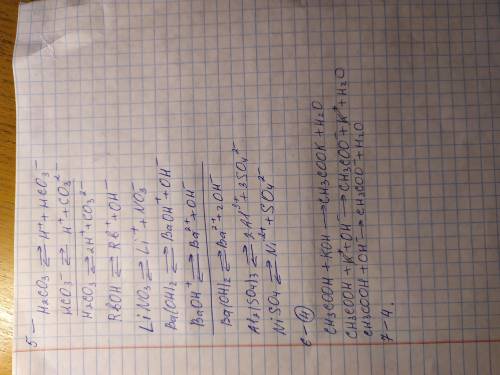 5 – H2CO3 ⇄ H⁺ + HCO3⁻
HCO3⁻ ⇄ H⁺ + CO3²⁻
H2CO3 ⇄ 2H⁺ + CO3²⁻
RbOH ⇄ Rb⁺ + OH⁻
LiNO3 ⇄ Li⁺ + NO3⁻
Ba(OH)2 ⇄ BaOH⁺ + OH⁻
BaOH⁺ ⇄ Ba²⁺ + OH⁻
Ba(OH)2 ⇄ Ba²⁺ + 2OH⁻
Al2(SO4)3 ⇄ 2Al³⁺ + 3SO4²⁻
NiSO4 ⇄ Ni²⁺ + SO4²⁻
6 – 4
CH3COOH + KOH → CH3COOK + H2O
CH3COOH + K⁺ + OH⁻ → CH3COO⁻ + K⁺ + H2O
CH3COOH + OH⁻ → CH3COO⁻ + H2O
7 – 4.